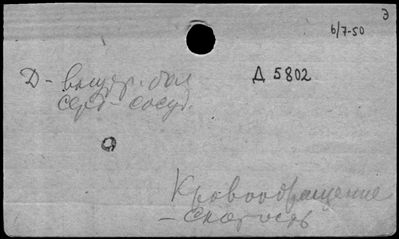 Э
6/7-50
Д 5802
Д -
серд - сосуд.
Кровообращение
- Скорость